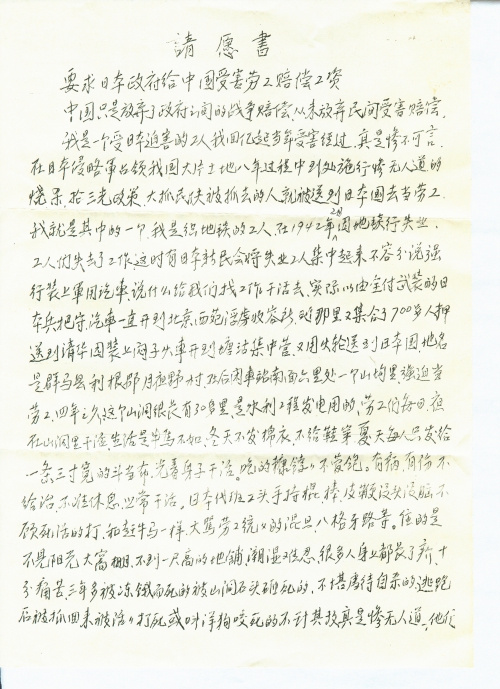 請愿書
要求日本政府给中国受害劳工赔偿工资
中国只是放弃了政府之间的战争赔偿，从未放弃民间受害赔偿。
我是一个受日本迫害的工人我回忆起当年受害经过，真是惨不可言。
在日本侵略軍占领我国大片土地八年过程中到处施行惨无人道的
烧杀，抢三光政策，大抓民伕被抓去的人就被送到日本国去当劳工
我就是其中的一个，我是织地毯的工人，在1942年因地毯行失业，
工人们失去了工作这时有日本新民会将失业工人集中起来不容分说强
行装上軍用汽車，说什么给我们找工作干活去，实际以由全付武装的日
本兵把守，汽車一直开到北京西苑浮虏收容所，到那里又集合了700多人押
送到清华园装上闷子火車开到塘沽集中营又用火轮送到日本国地名
是群马县利根郡月夜野村，后闲車站南面六里处一个山沟里强迫当
劳工，四年之久，这个山洞很长有30多里，是水利工程发电用的，劳工们每日夜
在山洞里干活，生活是牛马不如，冬天不发棉衣，不给鞋穿夏天每人只发给
一条三寸宽的斗当布，光着身子干活。吃的糠饽々不管饱，有病，有伤不
给治，不准休息，照常干活，日本代班工头手持棍，棒，皮鞭没头没脑，不
顾死活的打，和赶牛马一样，大骂劳工统々的混旦，八格牙路等。住的是
不見阳光大窝棚，不到一尺高的地铺，潮湿又很多人身上都長了疥，十
分痛苦，三年多被冻，饿而死的被山洞石头砸死的，不堪虐待自杀的，逃跑
后被抓回来被活々打死或叫洋狗咬死的不计其数真是惨无人道，他们